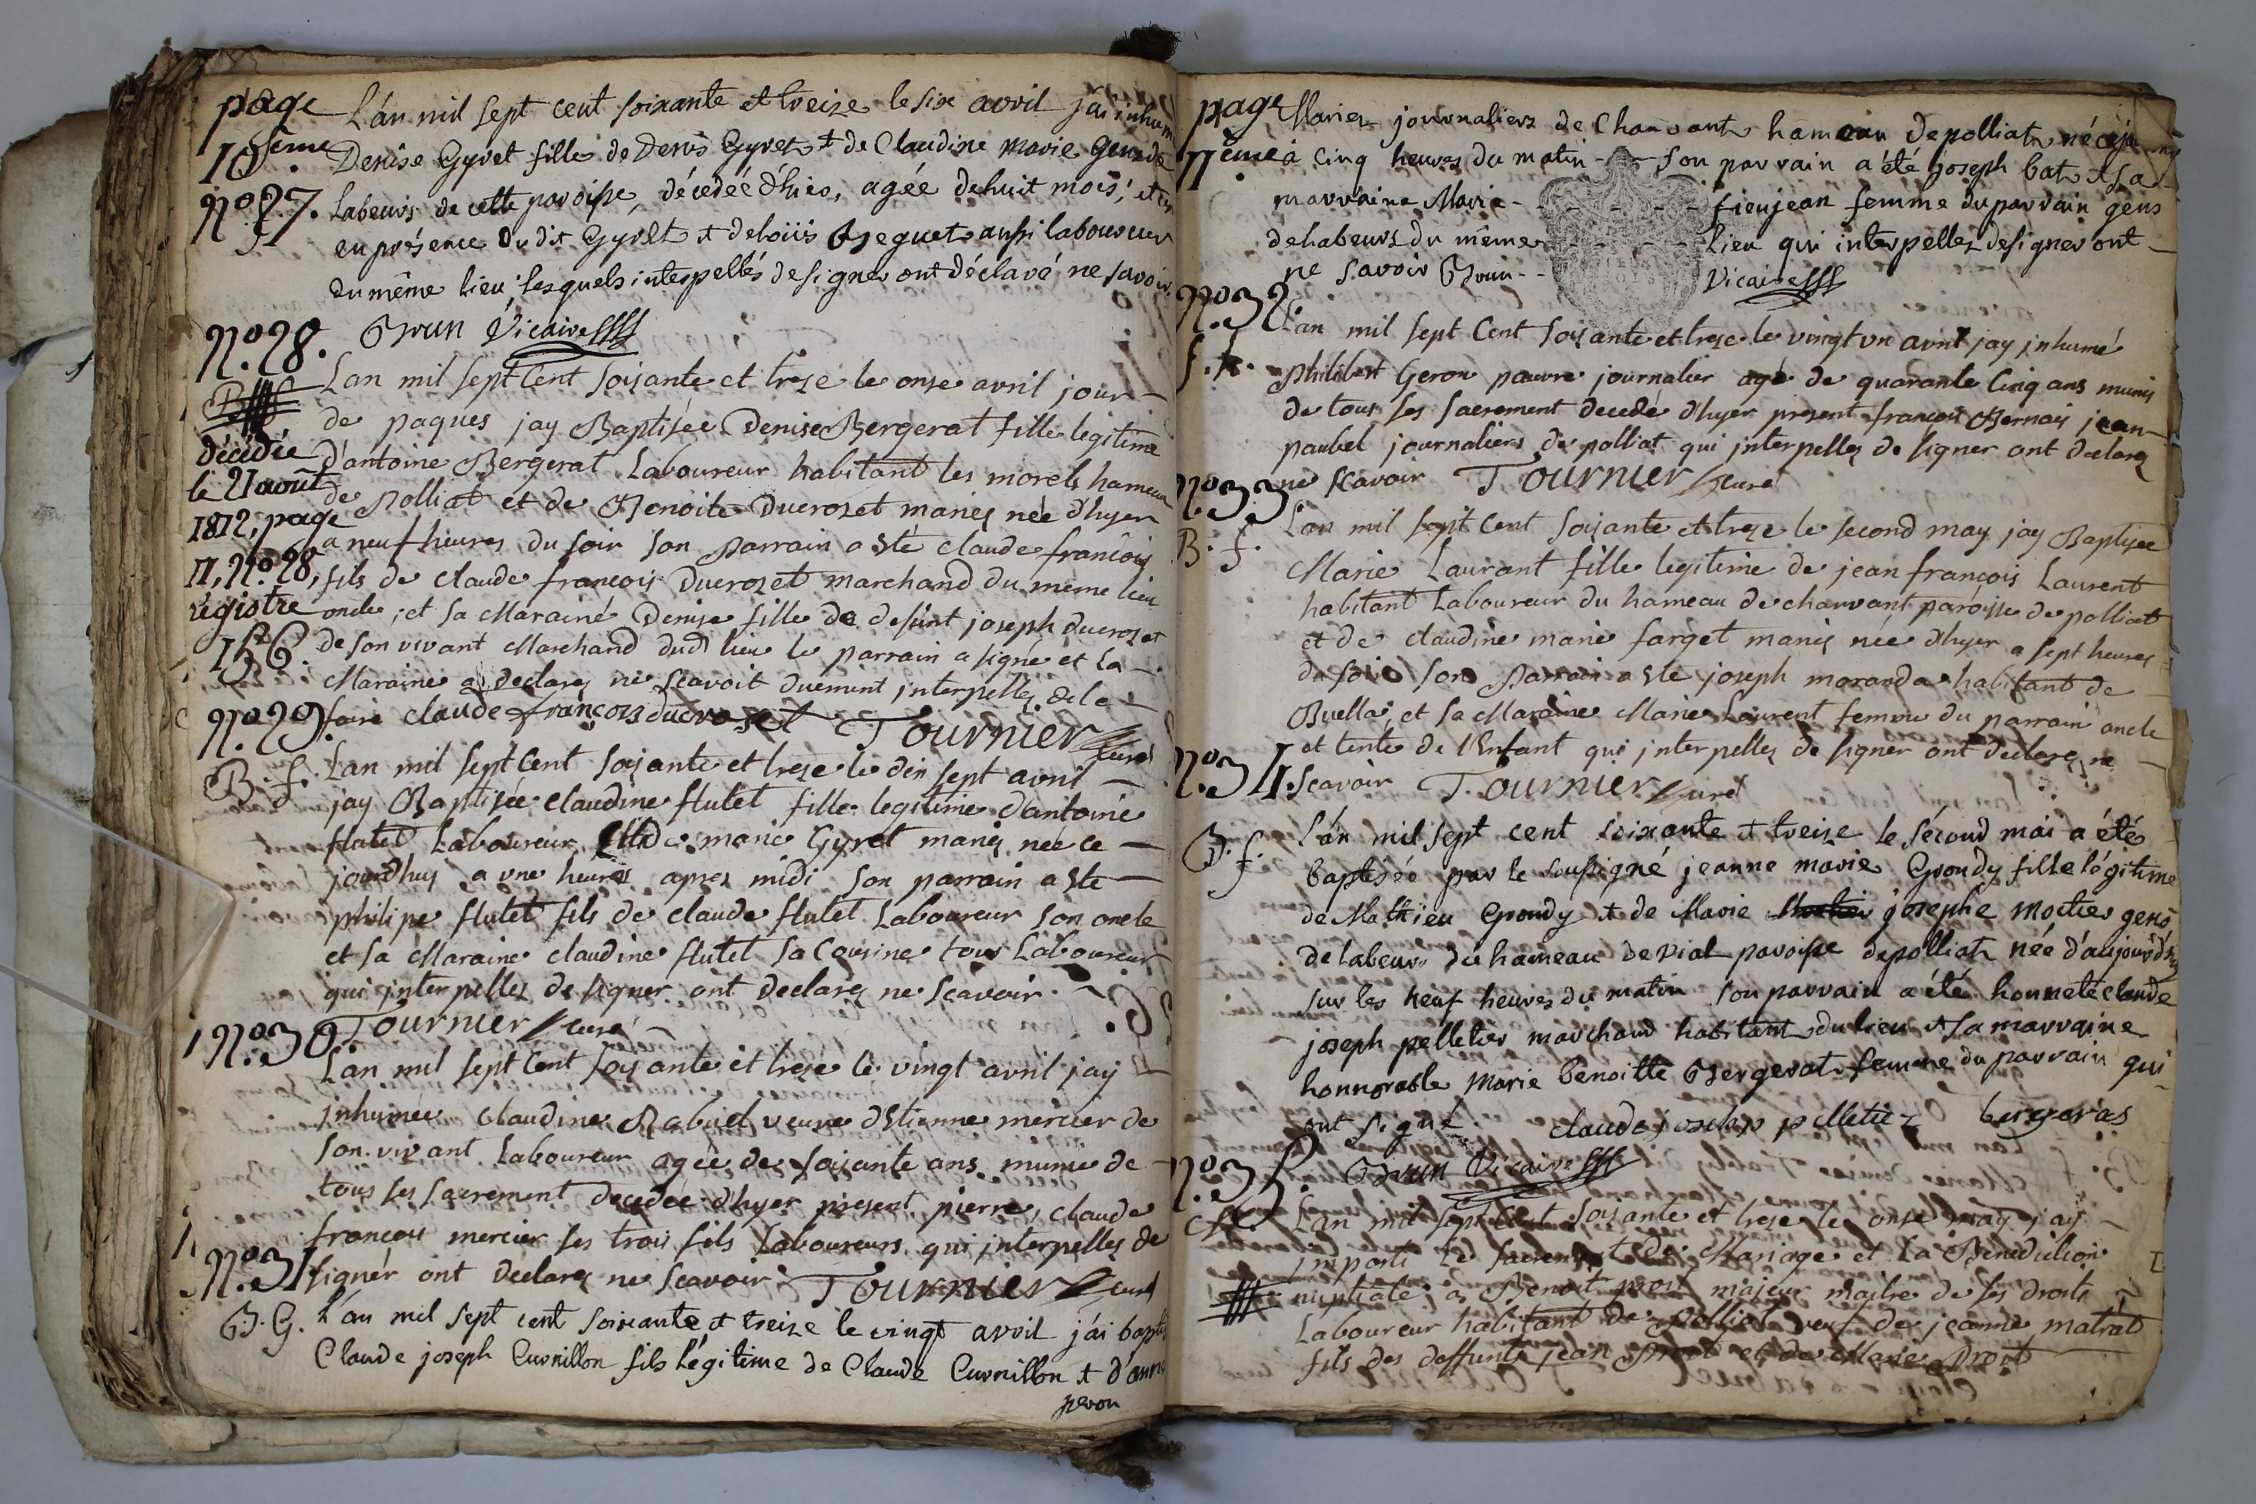 page
10ème.
No. 27.
L'an mil sept cent soixante et treize le six avril j'ai inhumé
Denise Gyret fille de Denis Gyret & de Claudine Marie gens de
labeurs de cette paroisse, décedée d'hier, agée de huit mois, et ce
en présence dudit Gyret & de loüis Feguet aussi laboureur
du même lieu lesquels interpellés de signer ont déclaré ne savoir.
Brun Vicaire
No. 28.
B. f.
décédée
le 21 août
1812, page
17, No. 28,
registre
Lan mil sept Cent soixante et treze le onse avril jour
de paques jay Baptisée Denise Bergerat fille legitime
d'antoine Bergerat Laboureur habitant les morels hameau
de Polliat et de Benoite Ducroset mariés née d'hyer
a neuf heures du soir son Parrain a esté claude françois
fils de claude françois Ducroset marchand du meme lieu
oncle, et sa Maraine Denise fille de defunt joseph ducroset
de son vivant Marchand dud lieu le parrain a signé et la
Maraine a declarez ne scavoit duement interpellez de le
faire claude françois ducroset Tournier Curé
No. 29.
B. f.
Lan mil sept Cent soixante et treze le dix sept avril
jay Baptisée claudine flutet fille legitime d'antoine
flutet Laboureur et de marie Gyret mariez née ce
jourdhuy a une heures apres midi son parrain a esté
philipe flutet fils de claude flutet Laboureur son oncle
et sa Maraine claudine flutet sa Cousine tous Laboureur
qui interpellez de signer ont declarez ne scavoir.
Tournier Curé
No. 30.
L'an mil sept Cent soixante et treze le vingt avril jay
inhumée claudine Rabuel veuve d'Etienne mercier de
son vivant Laboureur agée de soixante ans munie de
tous ses sacrement decedée d'hyer present pierre, claude
françois mercier ses trois fils Laboureurs qui interpelles de
signér ont declarez ne scavoir Tournier Curé
No. 31
B. G.
L'an mil sept cent soixante & treize le vingt avril j'ai baptisé
Claude joseph Curnillon fils légitime de Claude Curnillon & d'anne
page
11ème
Mariez journaliers de Chanvant hameau de polliat né cejourd
à cinq heures du matin son parrain a été joseph bat & sa
marraine Marie fieujean femme du parrain gens
de labeurs du même lieu qui interpellez de signer ont
ne savoir Brun Vicaire
No. 32
Lan mil sept Cent soixante et treze le vingt un avril jay inhumé
philibert Geron pauvre journalier agé de quarante cinq ans munis
de tous ses sacrement decedé d'hyer present françois Bernais jean
paubel journaliers de polliat qui interpellez de signer ont declarez
ne scavoir Tournier Curé
No. 33
B. f.
Lan mil sept Cent soixante et treze le second may jay Baptisée
Marie Laurant fille legitime de jean françois Laurent
habitant Laboureur du hameau de chanvant paroisse de polliat
et de claudine marie farget mariés née d'hyer a sept heures
du soir son Parrain a esté joseph moranda habitant de
Buella, et sa Maraine Marie Laurent femme du parrain oncle
et tente de l'Enfant qui interpellez de signer ont declarez ne
scavoir Tournier Curé
No. 34.
B. f.
L'án mil sept cent soixante & treize le sécond mai a été
baptisée par le soussigné jeanne marie Grondy fille légitime
de Mathieu Grondy & de Marie josephe Moctier gens
de labeurs du hameau de vial paroisse de polliat née d'aujourd'huy
sur les neuf heures du matin son parrain a été honnete claude
joseph pelletier marchand habitant du lieu & sa marraine
honnorable Marie benoitte Bergerat femme du parrain qui
ont signé. claude joseph pelletiez bergeras
Brun Vicaire
No. 35.
Lan mil sept Cent soixante et treze le onse may jay
imparti le sacrement de Mariage et la Benediction
nuptiale a Benoit prost majeur maitre de ses droits
Laboureur habitant de Polliat veuf de jeanne matrat
fils des deffunts jean Prost et de Marie Prost